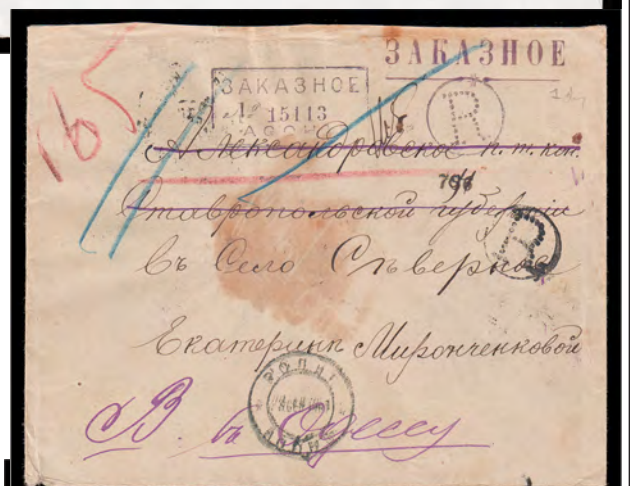 ЗАКАЗНОЕ
165
ЗАКАЗНОЕ
№ 15113
R
Александровское п. т. кон.
Ставропольской губернiи
R
въ Село Сѣверное
Екатеринѣ Миронченковой
В. въ Одессу